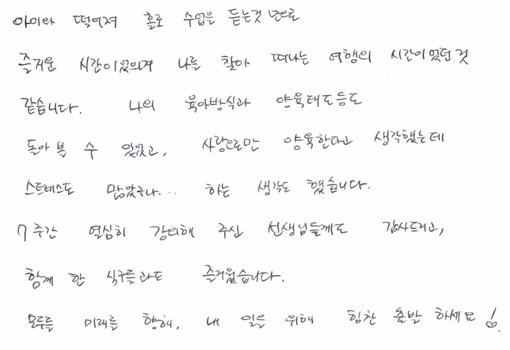 아이와 떨어져 홀로 수업을 듣는것 만으로
즐거운 시간이었으며 나를 찾아 떠나는 여행의 시간이었던 것
같습니다. 나의 육아방식과 양육태도등도
돌아 볼 수 있었고, 사랑으로만 양육한다고 생각했는데
스트레스도 많았구나... 하는 생각도 했습니다.
7주간 열심히 강의해 주신 선생님들께도 감사드리고,
함께 한 식구들과도 즐거웠습니다.
모두들 미래를 향해, 내 일을 위해 힘찬 출발 하세요!